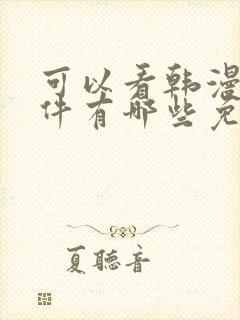 可以看韩漫
件有哪些免
夏聽音